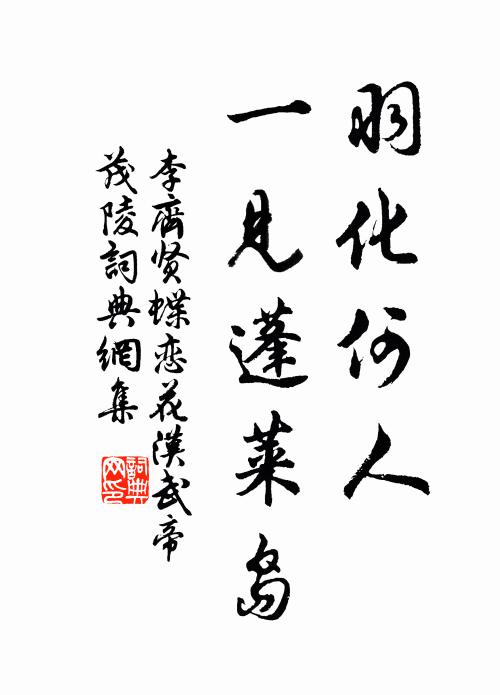 羽化何人
一見蓬萊島
李齊贤蝶恋花漢武帝
茂陵詞典網集
詞典
网印